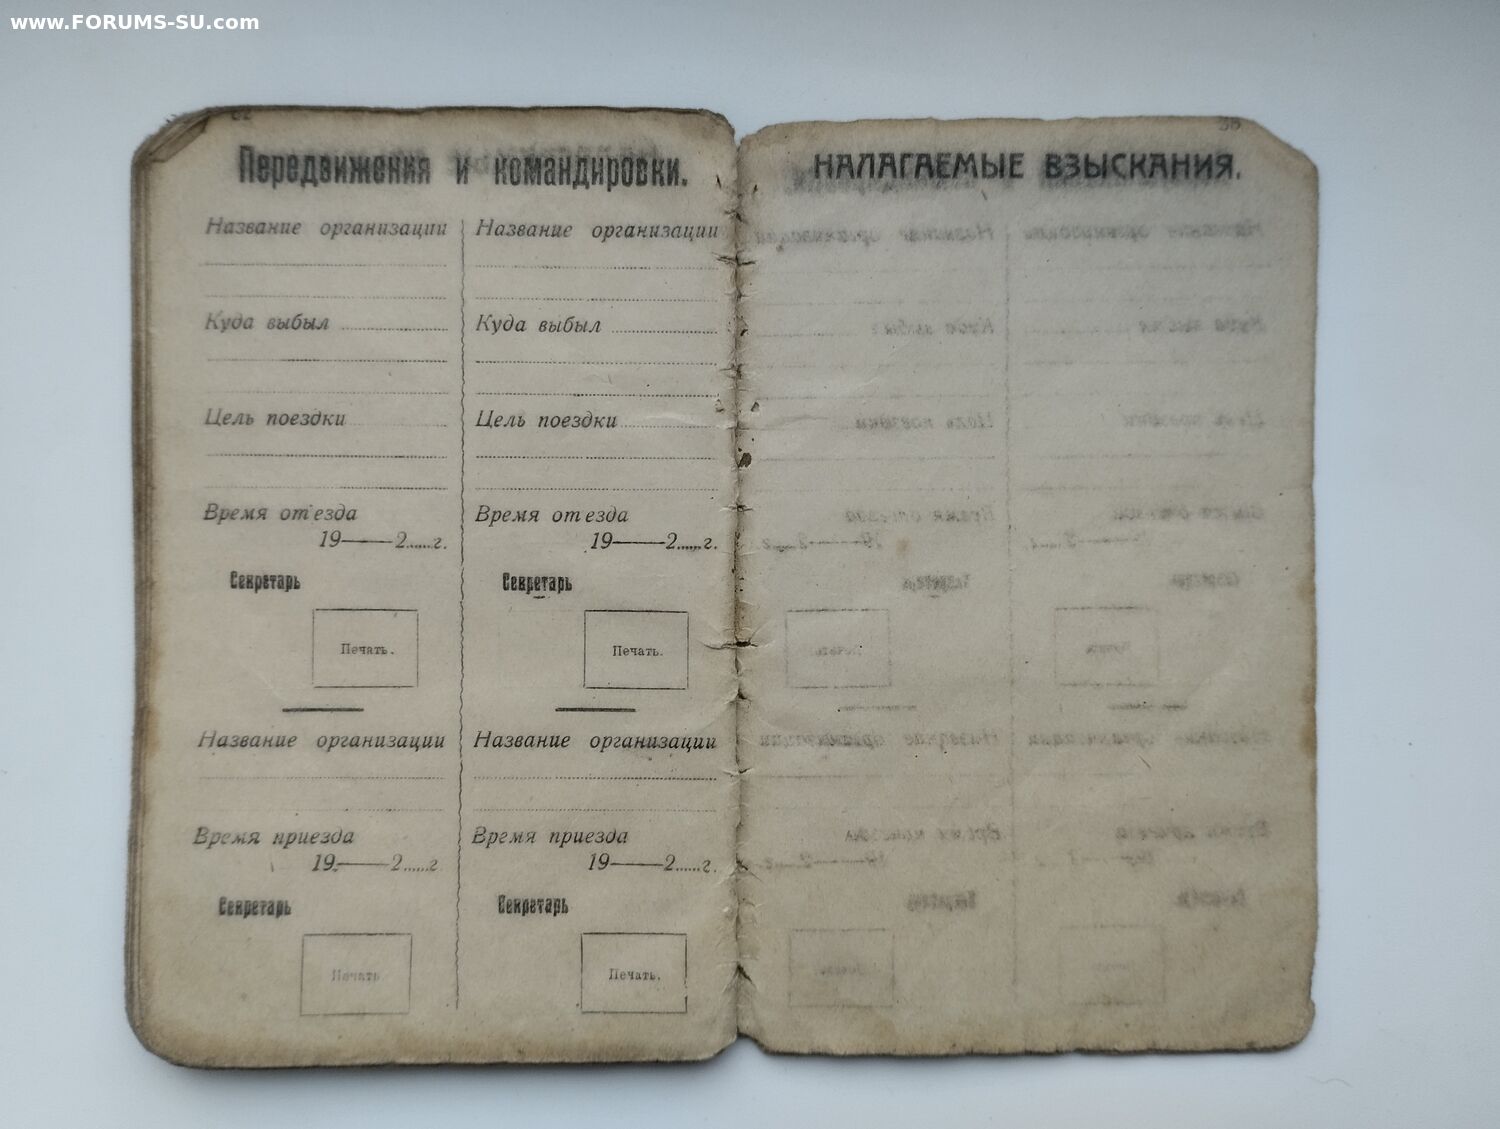 www.FORUMS-SU.com
Передвижения и командировки.
Название организации
Куда выбыл
Цель поездки
Время от'езда
19——2.....г.
Секретарь
Печать.
Название организации
Время приезда
19——2.....г
Секретарь
Печать
Название организации
Куда выбыл
Цель поездки
Время отезда
19——2.....г.
Секретарь
Печать.
Название организации
Время приезда
19——2.....г.
Секретарь
Печать.
НАЛАГАЕМЫЕ ВЗЫСКАНИЯ.